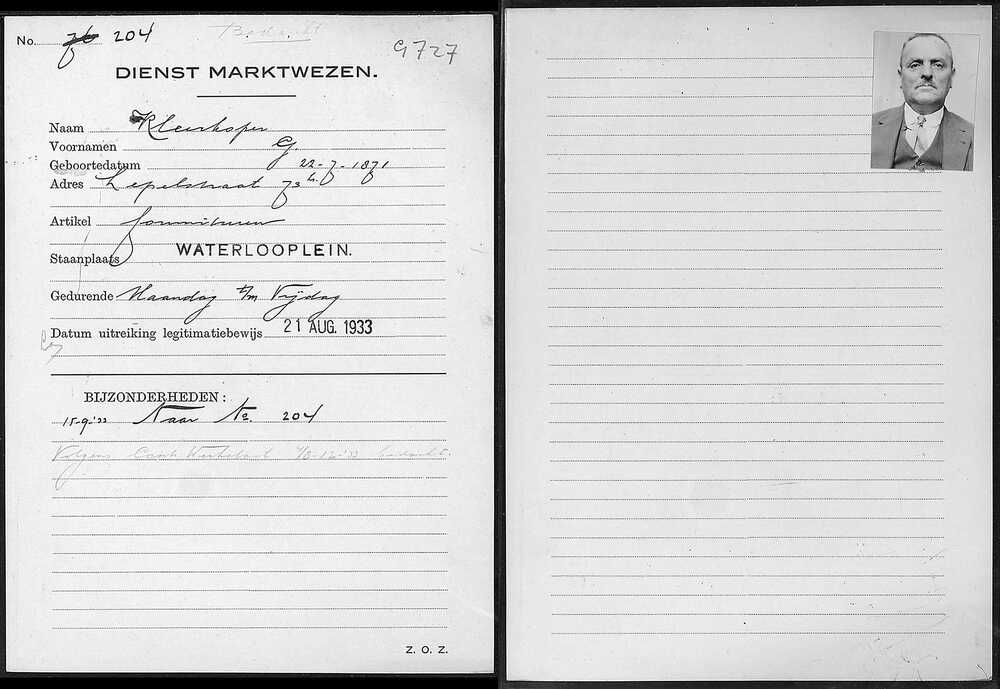 No. 76 204
G 727
DIENST MARKTWEZEN.
Naam Kleerkoper
Voornamen G.
Geboortedatum 22-7-1871
Adres Lepelstraat 73 h.
Artikel fournituren
Staanplaats WATERLOOPLEIN.
Gedurende Maandag t/m Vrijdag
Datum uitreiking legitimatiebewijs 21 AUG. 1933
BIJZONDERHEDEN:
15-9-'33 Naar No. 204
Volgens
Z. O. Z.